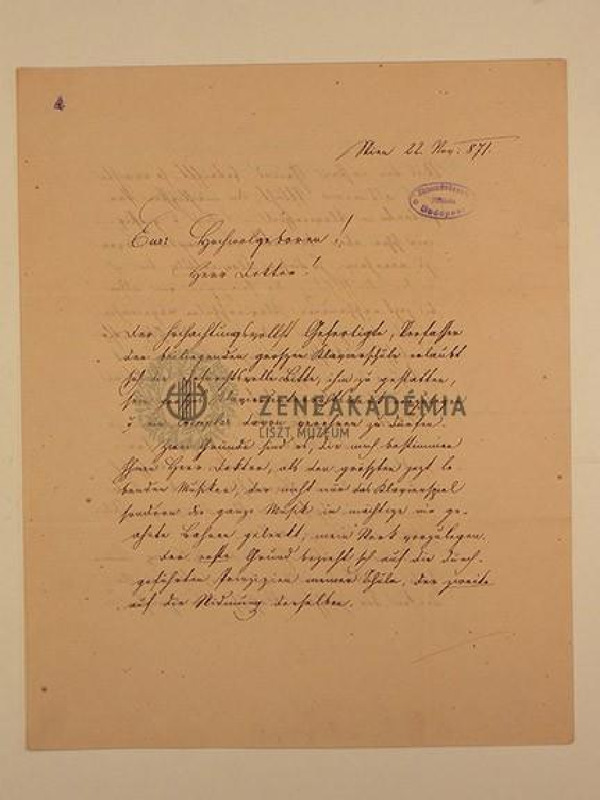 Wien 22. Nov. 871.
Zeneakadémia
Budapest
Euer Hochwolgeboren!
Herr Doktor!
Der hochachtungsvollst Gefertigte, Verfasser
der beiliegenden großen Klavierschule erlaubt
sich die Bitte, ihm zu gestatten,
ZENEAKADÉMIA
LISZT MÚZEUM
Exemplar davon verehren zu dürfen.
Zwei Gründe sind es, die mich bestimmen
Ihnen Herr Doktor, als den größten jezt le
benden Musiker, der nicht nur das Klavierspiel
sondern die ganze Musik in mächtige nie ge-
ahnte Bahnen gelenkt, mein Werk vorzulegen.
Der erste Grund bezieht sich auf die durch-
geführten Prinzipien meiner Schule, der zweite
auf die Widmung derselben.